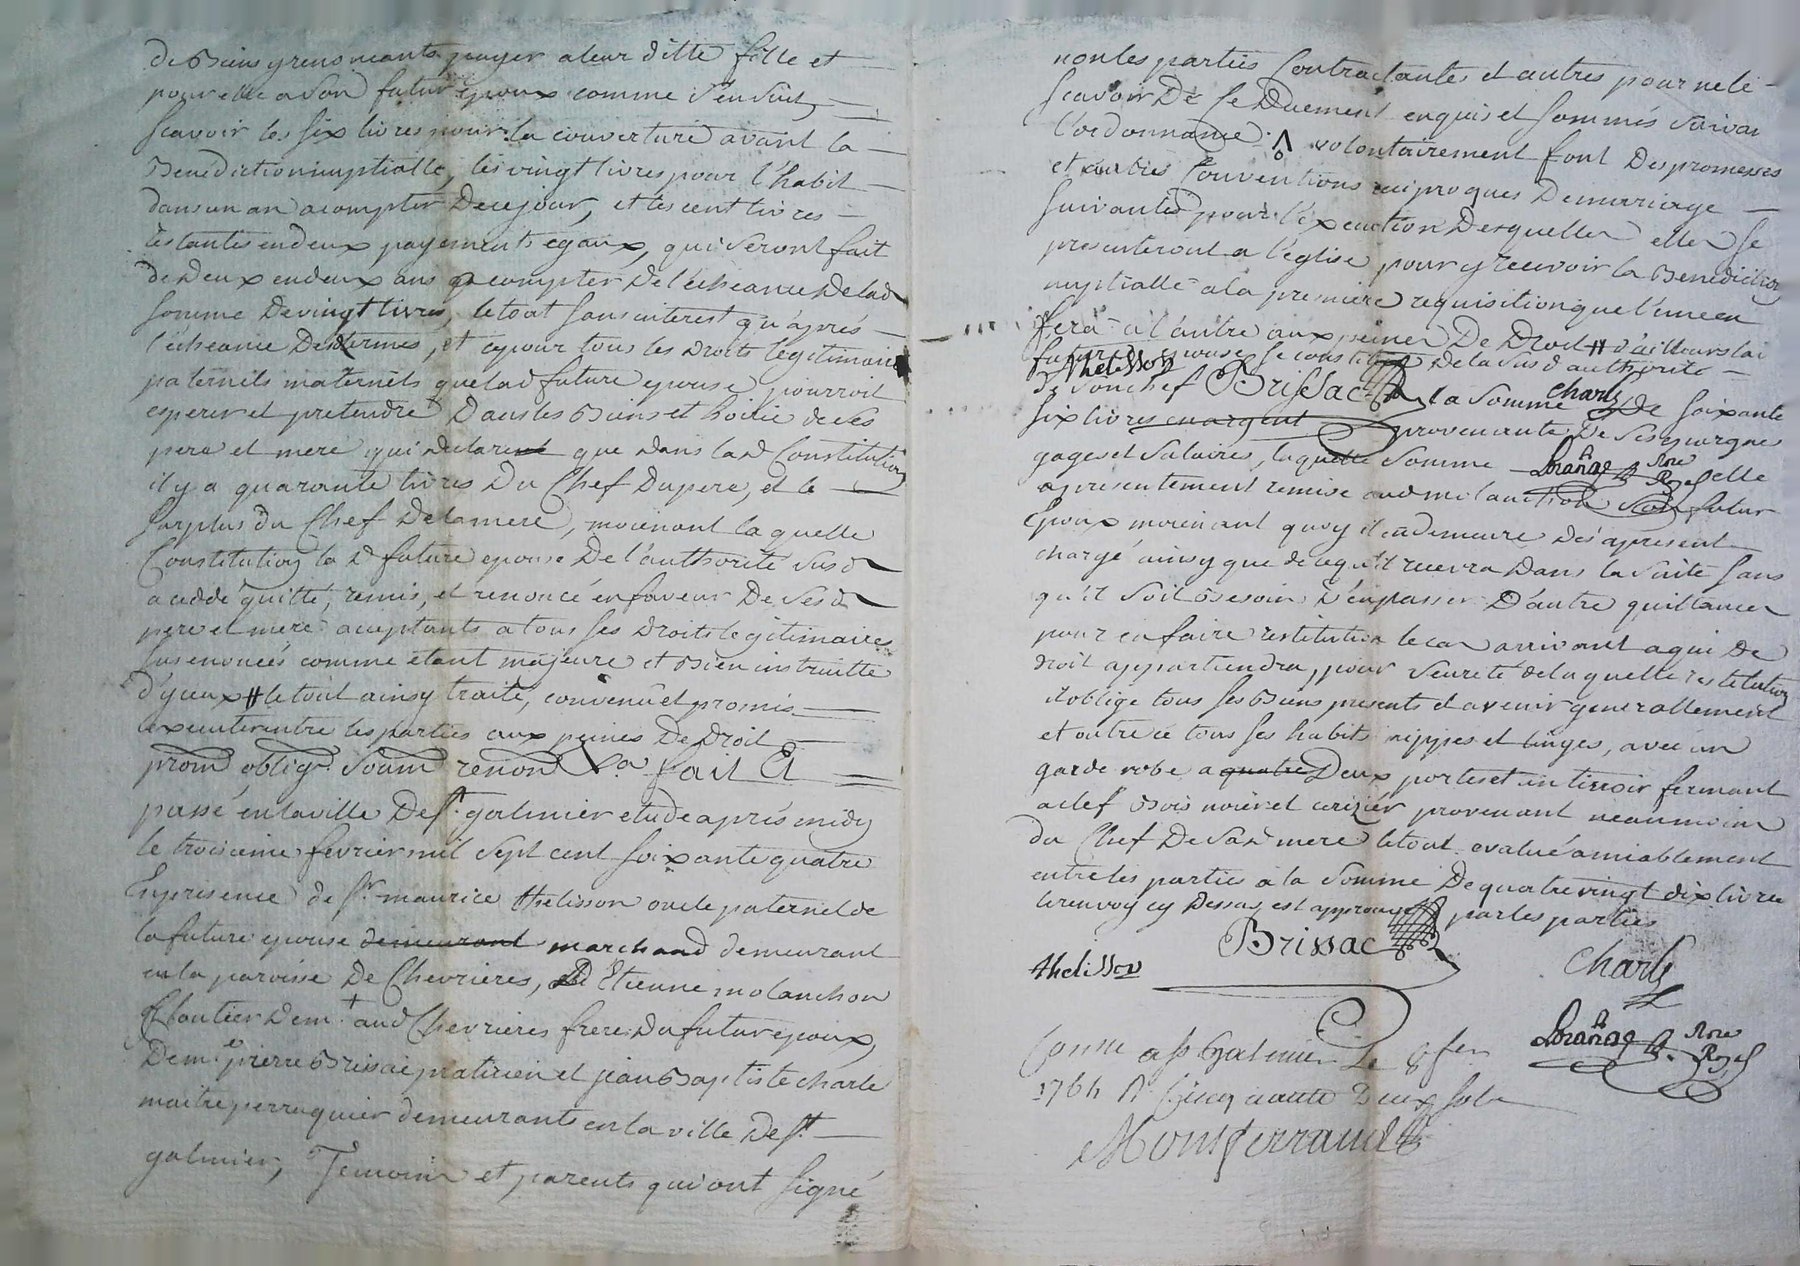 de Biens y renoncants payer a leur ditte fille et
pour elle a son futur epoux comme s'ensuit,
scavoir les six livres pour la couverture avant la
Benediction nuptialle, les vingt livres pour l'habit
dans un an a compter De ce jour, et les cent livres
restantes en deux payements egaux, qui seront fait
de Deux en deux ans a compter De l'écheance De lad
somme De vingt livres, le tout sans interest qu'aprés
l'écheance Des termes, et cy pour tous les Droits legitimaires
paternels maternels que lad future epouse pourroit
esperer et pretendre Dans les Biens et hoirie de ses
pere et mere qui declarent que dans lad Constitution
il y a quarante livres Du Chef Du pere, et le
surplus du Chef De la mere, moienant laquelle
Constitution la d future epouse De l'authorité susd
a cédé quitté, remis, et renoncé en faveur De sesd
pere et mere acceptants a tous ses Droits legitimaires
sus enoncés comme etant majeure et Bien instruitte
d'yceux # le tout ainsy traité, convenu et promis
executer entre les parties aux peines De Droit
prom oblign soum renon &a fait Et
passé en la ville De St galmier etude aprés midy
le troisieme fevrier mil sept cent soixante quatre
En presence de sr maurice thelisson oncle paternel de
la future epouse demeurant marchand demeurant
en la paroisse De Chevrieres, De Etienne molanchon
Cloutier Demt aud Chevrieres frere Du futur epoux,
De mr pierre Brissac praticien et jean Baptiste charle
maitre perruquier demeurants en la ville De St
galmier, Temoins et parents qui ont signé
non les parties Contractantes et autres pour ne le
scavoir De ce Duement enquis et sommés suivan
l'ordonnance. volontairement font Des promesses
et autres Conventions reciproques De mariage
suivantes pour l'execution Desquelles elles se
presenteront a l'église pour y recevoir la Benediction
nuptialle a la premiere requisition que l'une en
fera a l'autre aux peines De Droit # d'ailleurs la
future epouse se constitue de la susd authorité
thelisson
de son chef Brissac la somme Charle De soixante
six livres en argent provenante De ses epargnes
gages et salaires, laquelle somme elle
Rore
a presentement remise aud molanchon son futur
Epoux moienant quoy il en demeure dés apresent
chargé ainsy que de ce qu'il recevra Dans la suite sans
qu'il soit Besoin D'en passer D'autre quittance
pour en faire restitution le cas arrivant a qui De
droit appartiendra, pour seureté de laquelle restitution
il oblige tous ses Biens presents et avenir generallement
et outre ce tous ses habits nippes et linges, avec un
garde robe a quatre Deux portes et un tiroir fermant
a clef Bois noier et cerizier provenant neanmoins
du Chef De sa mere le tout evalué amiablement
entre les parties a la somme De quatre vingt dix livres
le renvoy cy Dessus est approuvé par les parties
Brissac
thelisson
Charle
Rore
Conlle a St Galmier Le 8 fer
1764 R Cinquante Deux sols
Montferrand